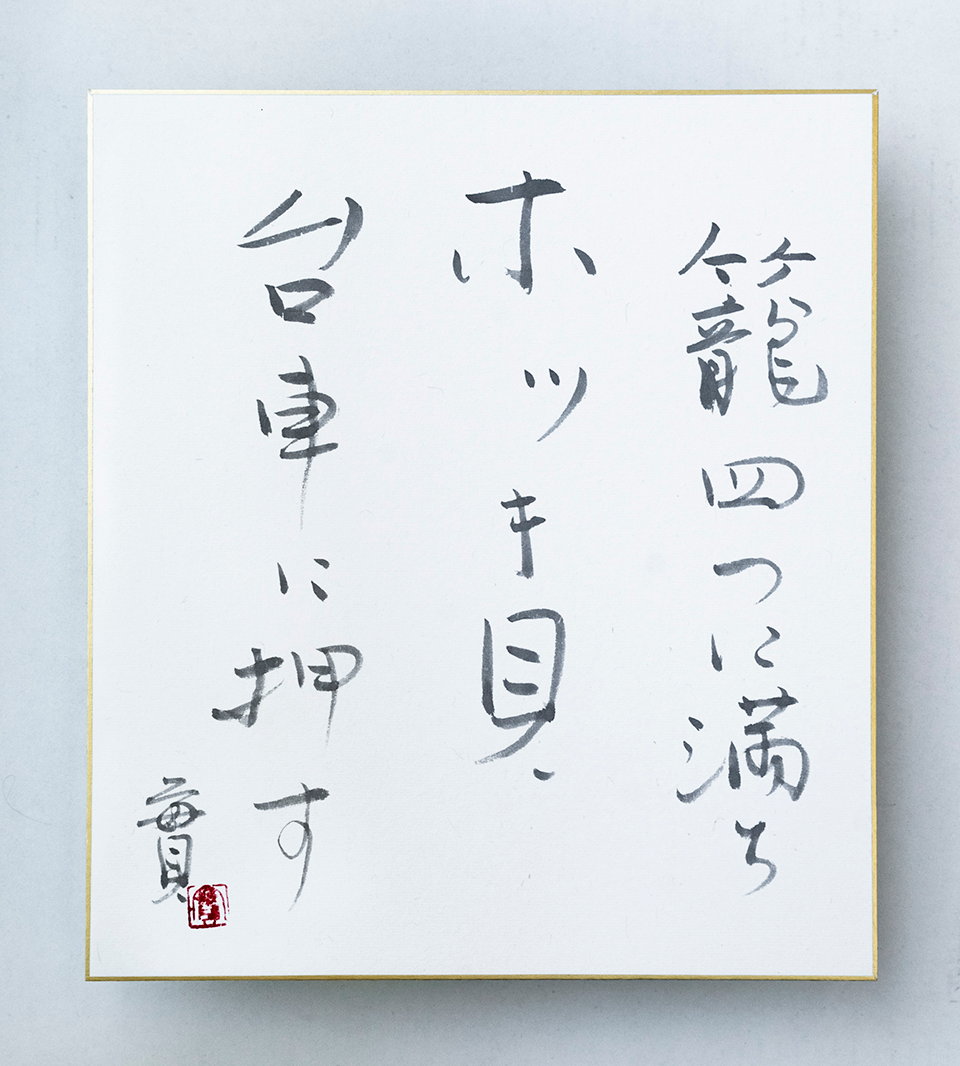 籠四つに満ち
ホッキ貝
台車に押す
實